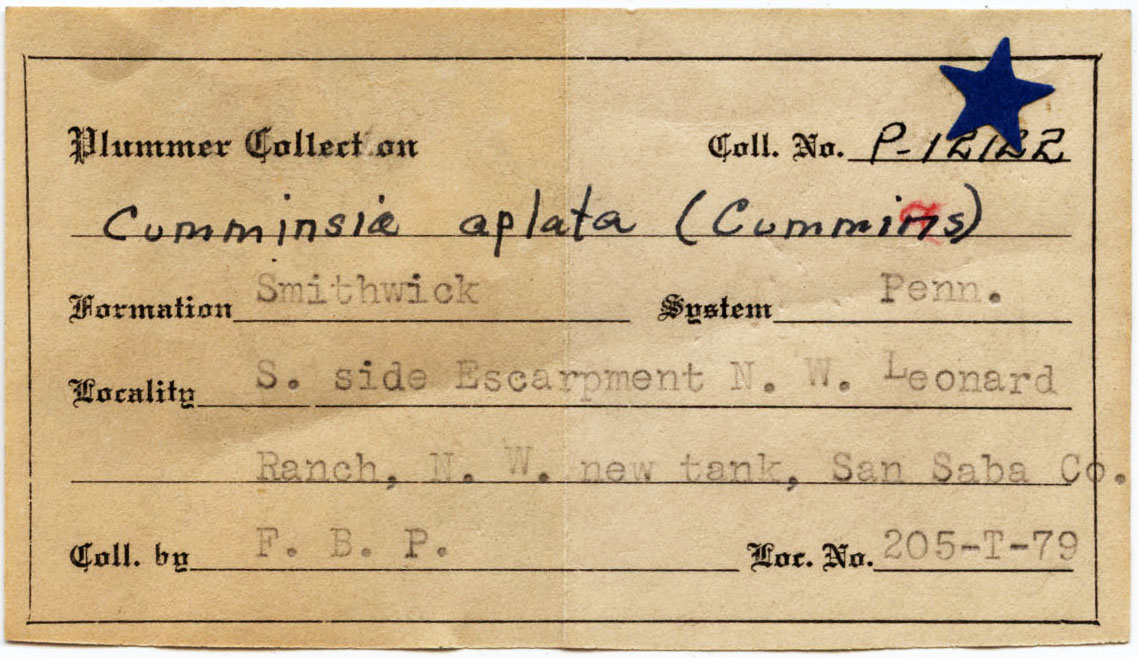 Plummer Collection Coll. No. P-12122
Cumminsia aplata (Cummins)
Formation Smithwick System Penn.
Locality S. side Escarpment N. W. Leonard
Ranch, N. W. new tank, San Saba Co.
Coll. by F. B. P. Loc. No. 205-T-79